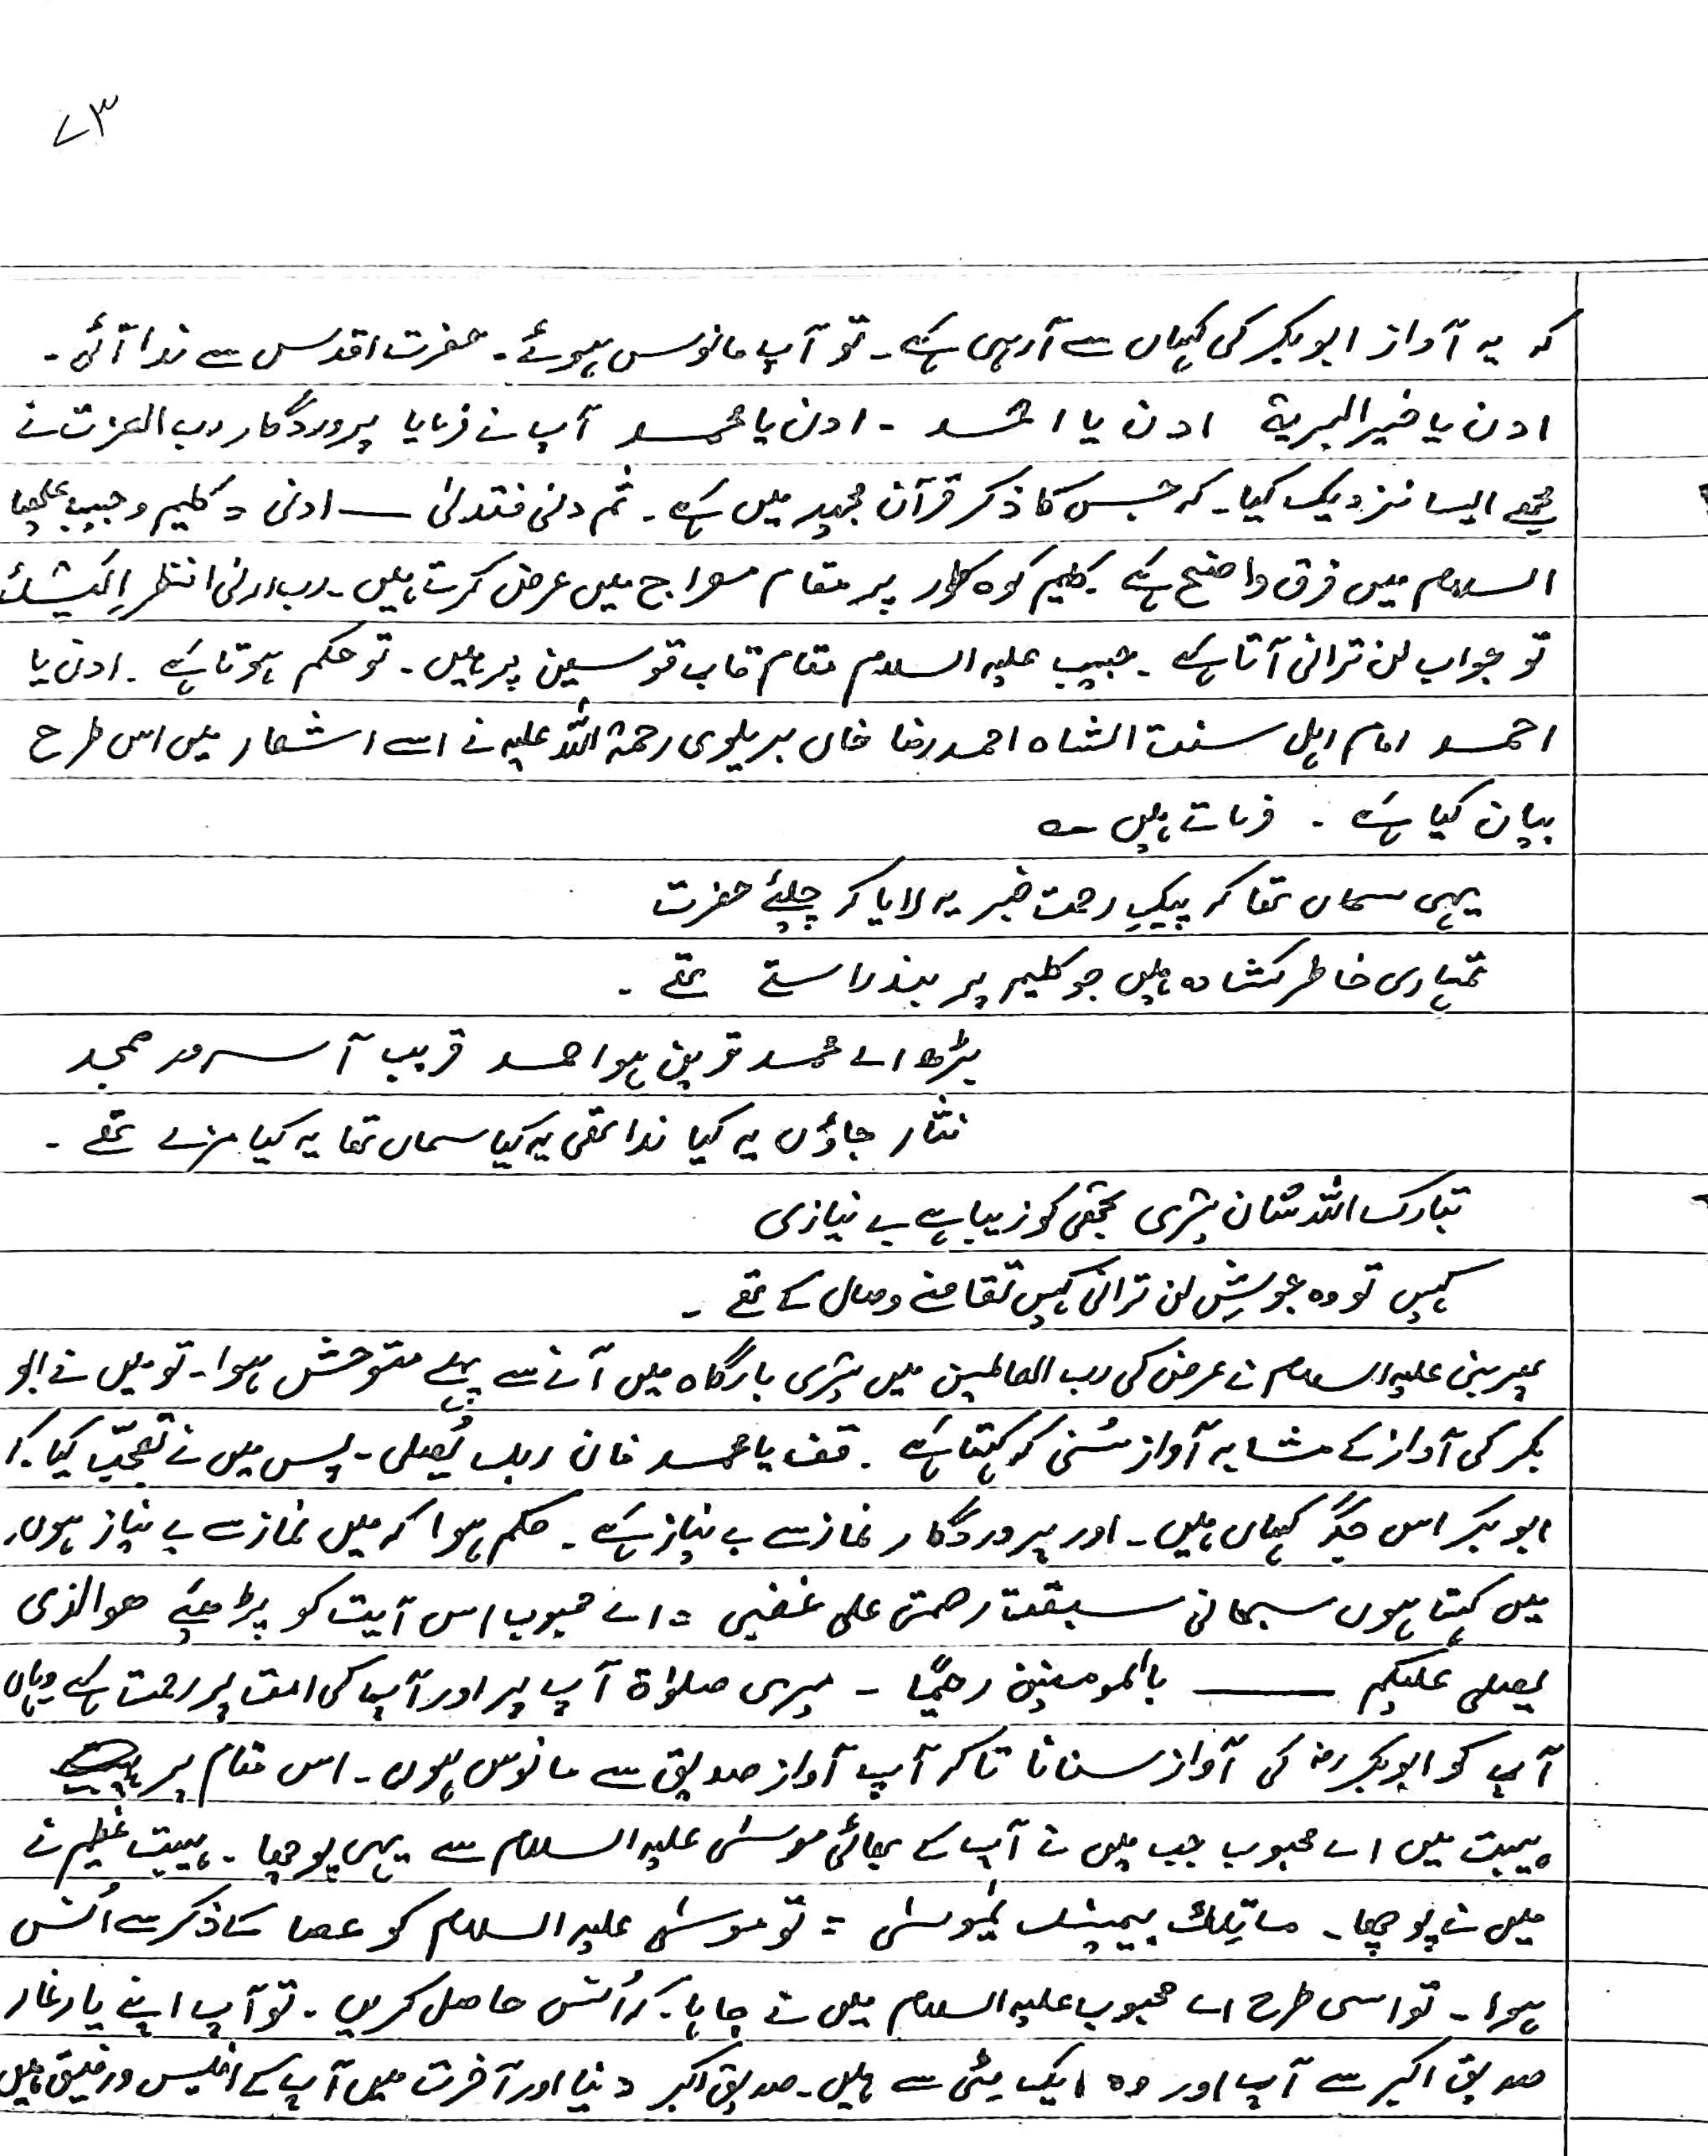 ۷۳
کہ یہ آواز ابوبکر کی کہاں سے آرہی ہے۔ تو آپ مانوس ہوئے۔ حضرت اقدس سے ندا آئی۔
ادن یا خیر البریۃ ادن یا احمد ۔ ادن یا محمد آپ نے فرمایا پروردگار رب العزت نے
مجھے ایسا نزدیک کیا۔ کہ جس کا ذکر قرآن مجید میں ہے۔ ثم دنی فتدلی — ادنی = کلیم و حبیب علیھا
السلام میں فرق واضح ہے۔ کلیم کوہ طور پر مقام معراج میں عرض کرتے ہیں۔ رب ارنی انظر الیک
تو جواب لن ترانی آتا ہے۔ حبیب علیہ السلام مقام قاب قوسین پر ہیں۔ تو حکم ہوتا ہے۔ ادن یا
احمد امام اہل سنت الشاہ احمد رضا خاں بریلوی رحمۃ اللہ علیہ نے اسے اشعار میں اس طرح
بیان کیا ہے ۔ فرماتے ہیں ؎
یہی سماں تھا کہ پیکِ رحمت خبر یہ لایا کہ چلئے حضرت
تمہاری خاطر کشادہ ہیں جو کلیم پر بند راستے تھے ۔
بڑھ اے محمد قریں ہو احمد قریب آ سرور ممجد
نثار جاؤں یہ کیا ندا تھی یہ کیا سماں تھا یہ کیا مزے تھے ۔
تبارک اللہ شان تیری تجھی کو زیبا ہے بے نیازی
کہیں تو وہ جوشِ لن ترانی کہیں تقاضے وصال کے تھے ۔
پھر نبی علیہ السلام نے عرض کی رب العالمین میں تیری بارگاہ میں آنے سے پہلے متوحش ہوا۔ تو میں نے ابو
بکر کی آواز کے مشابہ آواز سُنی کہ کہتا ہے ۔ قف یا محمد فان ربک یُصلی۔ پس میں نے تعجّب کیا کہ
ابوبکر اس جگہ کہاں ہیں۔ اور پروردگار نماز سے بے نیاز ہے۔ حکم ہوا کہ میں نماز سے بے نیاز ہوں۔
میں کہتا ہوں سبحانی سبقت رحمتی علی غضبی = اے محبوب اس آیت کو پڑھیے ھو الذی
یصلی علیکم —— بالمومنین رحیمًا ۔ میری صلوٰۃ آپ پر اور آپ کی امت پر رحمت ہے یہاں
آپ کو ابوبکر رضہ کی آواز سنانا تاکہ آپ آواز صدیق سے مانوس ہوں۔ اس مقام پر
ہیبت میں اے محبوب جب میں نے آپ کے بھائی موسیٰ علیہ السلام سے یہی پوچھا۔ ہیبت عظیم نے
میں نے پوچھا۔ ماتِلک بیمینک یٰموسیٰ = تو موسیٰ علیہ السلام کو عصا کے ذکر سے اُنس
ہوا۔ تو اسی طرح اے محبوب علیہ السلام میں نے چاہا۔ کہ اُنس حاصل کریں۔ تو آپ اپنے یار غار
صدیق اکبر سے آپ اور وہ ایک مٹی سے ہیں۔ صدیق اکبر دنیا اور آخرت میں آپ کے انیس و رفیق ہیں